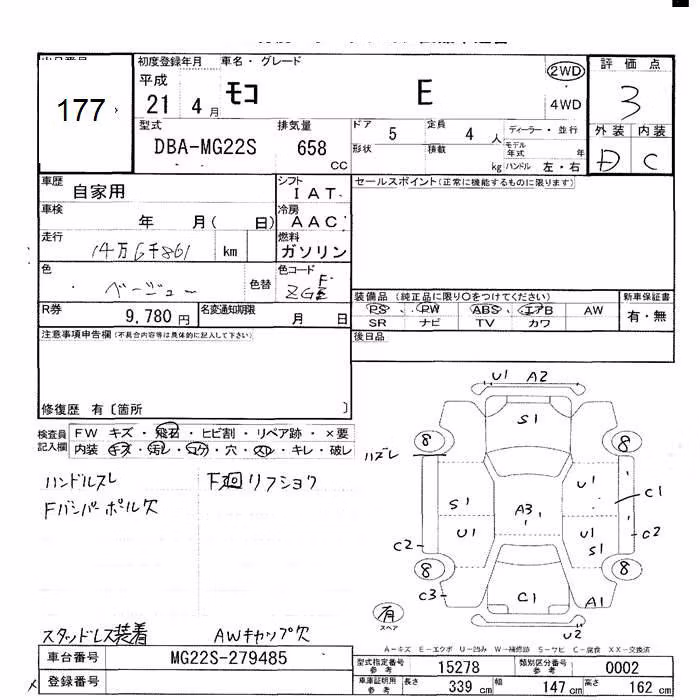 177
初度登録年月 車名・グレード
平成
21 4月 モコ E
2WD
4WD
評価点
3
外装 内装
D C
型式
DBA-MG22S
排気量
658 CC
ドア 5 定員 4 人
ディーラー・並行
形状 積載 kg
モデル年式 年
ハンドル 左・右
車歴
自家用
シフト
IAT
車検
年 月( 日)
冷房
AAC
走行
14万6千861 km
燃料
ガソリン
色
ベージュー
色替
色コード
R券
9,780円
名変通知期限
月 日
セールスポイント(正常に機能するものに限ります)
装備品 (純正品に限り○をつけてください)
PS PW ABS エアB AW
SR ナビ TV カワ
新車保証書
有・無
後日品
注意事項申告欄(不具合内容等は具体的に記入して下さい)
修復歴 有〔箇所 〕
検査員記入欄
FW キズ・飛石・ヒビ割・リペア跡・×要
内装・キズ・汚レ・コゲ・穴・スレ・キレ・破レ
ハンドルスレ
Fバンパーポール欠
F廻リフショク
スタッドレス装着
AWキャップ欠
U1 A2
S1
8 8
ハズレ
S1 U1 C1
A3
U1 U1
S1
C2 C2
8 8
C3 C1 A1
U2
有
スペア
A−キズ E−エクボ U−凹み W−補修跡 S−サビ C−腐食 XX−交換済
車台番号 MG22S-279485
登録番号
型式指定番号 参考 15278 類別区分番号 参考 0002
車庫証明用 参考 長さ 339 cm 幅 147 cm 高さ 162 cm